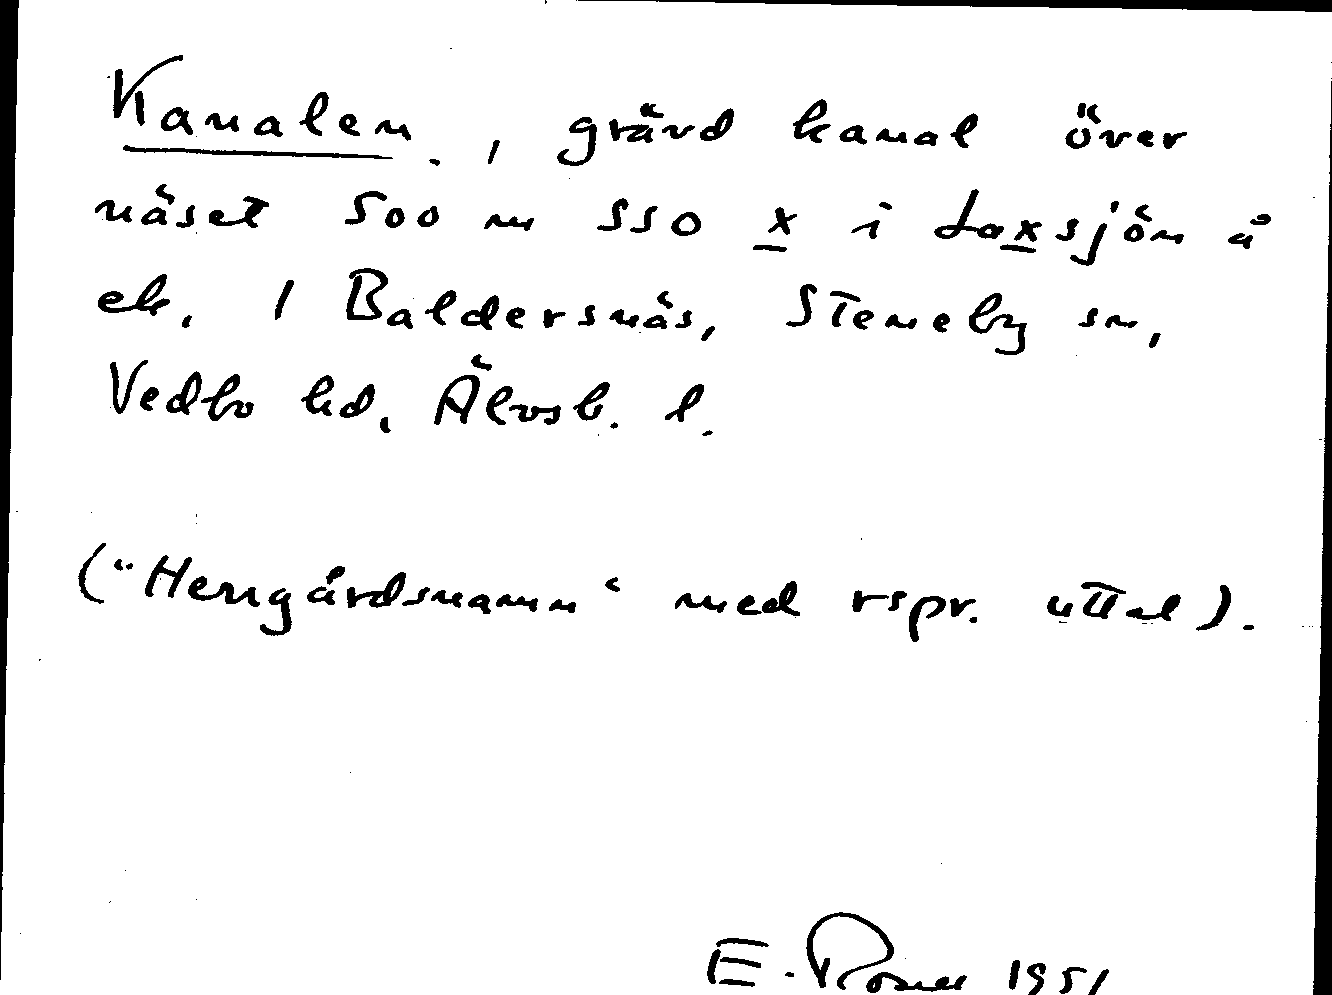 Kanalen., grävd kanal över
näset 500 m SSO x i Laxsjön å
ek. / Baldersnäs, Steneby sn,
Vedbo hd, Älvsb. l.
("Herrgårdsnamn" med rspr. uttal).
E. 1951